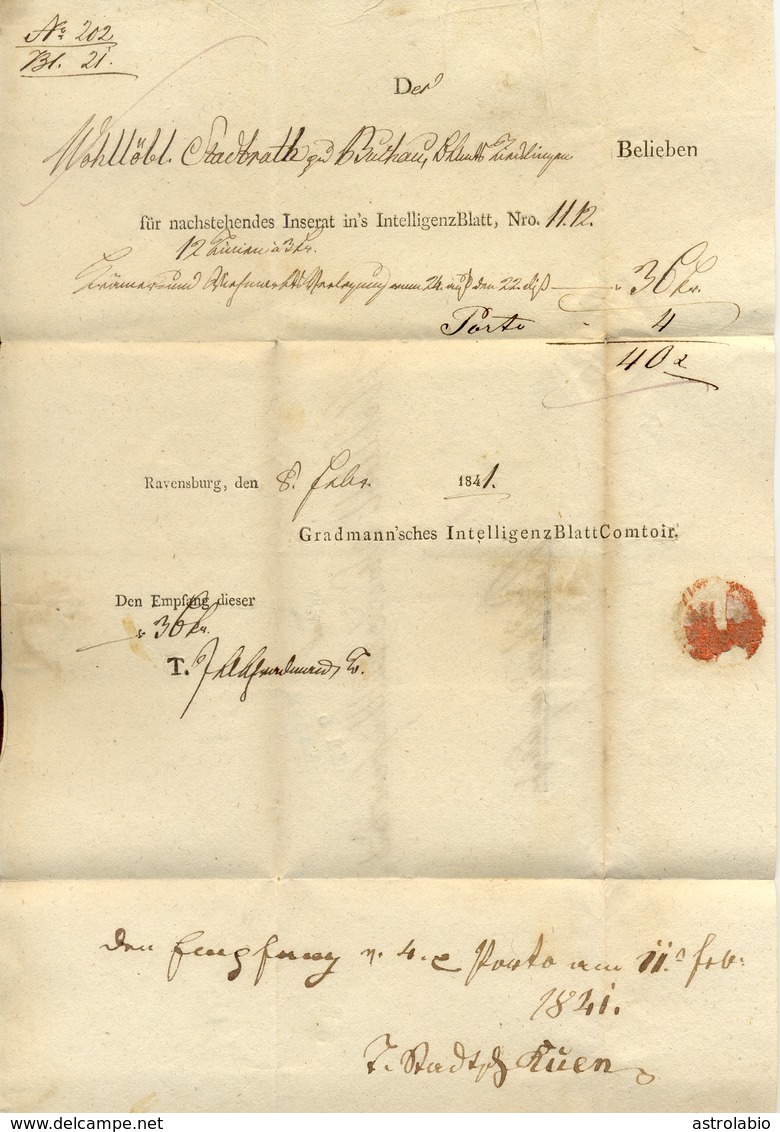 No. 202
Bl. 21.
Der
Wohllöbl. Stadtrath zu Buchau, Oberamts Riedlingen Belieben
für nachstehendes Inserat in's IntelligenzBlatt, Nro. 11.12.
12 Linien à 3 kr.
Krämer und Viehmarkts Verlegung vom 24. auf den 22. diß 36 kr.
Porto 4
40 x
Ravensburg, den 8. Febr. 1841.
Gradmann'sches IntelligenzBlattComtoir.
Den Empfang dieser
36 kr.
T. Gradmann
den Empfang v. 4. x Porto am 11. Feb.
1841.
T. Stadtpfl Kuen
astrolabio